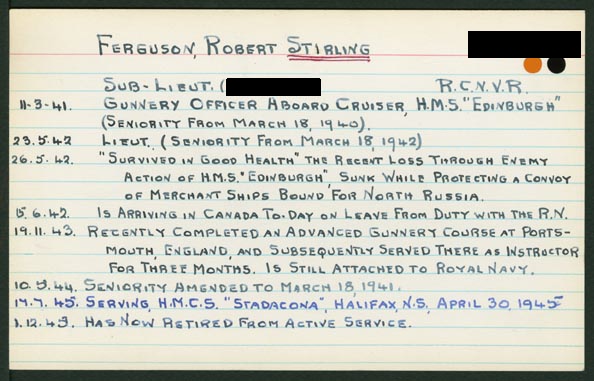 FERGUSON, ROBERT STIRLING
SUB-LIEUT. (
R.C.N.V.R.
11-3-41. GUNNERY OFFICER ABOARD CRUISER, H.M.S. "EDINBURGH"
(SENIORITY FROM MARCH 18, 1940).
23.5.42 LIEUT. (SENIORITY FROM MARCH 18, 1942)
26.5.42. "SURVIVED IN GOOD HEALTH" THE RECENT LOSS THROUGH ENEMY
ACTION OF H.M.S. "EDINBURGH", SUNK WHILE PROTECTING A CONVOY
OF MERCHANT SHIPS BOUND FOR NORTH RUSSIA.
15.6.42. IS ARRIVING IN CANADA TO-DAY ON LEAVE FROM DUTY WITH THE R.N.
19.11.43. RECENTLY COMPLETED AN ADVANCED GUNNERY COURSE AT PORTS-
MOUTH, ENGLAND, AND SUBSEQUENTLY SERVED THERE AS INSTRUCTOR
FOR THREE MONTHS. IS STILL ATTACHED TO ROYAL NAVY.
10.9.44. SENIORITY AMENDED TO MARCH 18, 1941.
17.7.45. SERVING, H.M.C.S. "STADACONA", HALIFAX, N.S., APRIL 30, 1945
1.12.45. HAS NOW RETIRED FROM ACTIVE SERVICE.